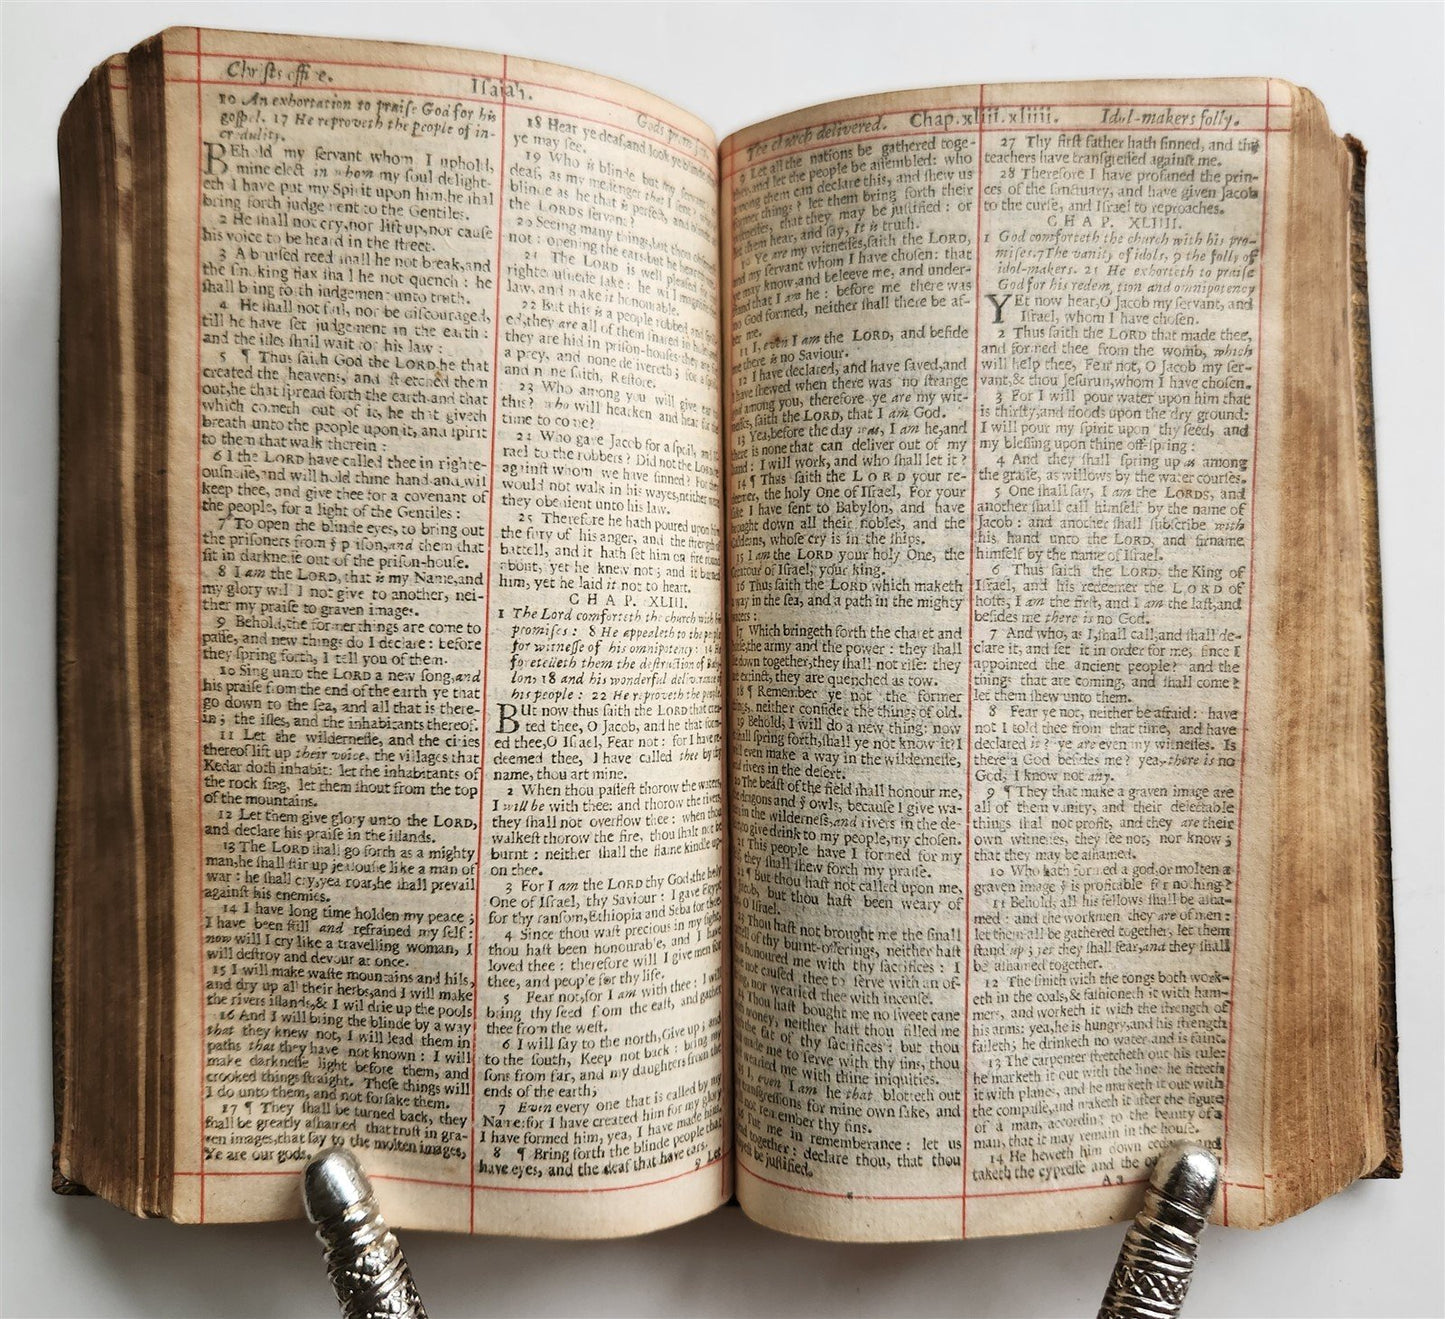 Christs office.
Isaiah.
10 An exhortation to praise God for his
gospel. 17 He reproveth the people of in-
credulity.
BEhold my servant whom I uphold,
mine elect in whom my soul delight-
eth I have put my Spirit upon him, he shal
bring forth judgement to the Gentiles.
2 He shall not cry, nor lift up, nor cause
his voice to be heard in the street.
3 A bruised reed shall he not break, and
the smoking flax shall he not quench: he
shall bring forth judgement unto truth.
4 He shall not fail, nor be discouraged,
till he have set judgement in the earth:
and the isles shall wait for his law:
5 ¶ Thus saith God the LORD, he that
created the heavens, and stretched them
out, he that spread forth the earth and that
which cometh out of it, he that giveth
breath unto the people upon it, and spirit
to them that walk therein:
6 I the LORD have called thee in righte-
ousnesse, and will hold thine hand and wil
keep thee, and give thee for a covenant of
the people, for a light of the Gentiles:
7 To open the blinde eyes, to bring out
the prisoners from ye prison, and them that
sit in darknesse out of the prison-house.
8 I am the LORD, that is my Name, and
my glory will I not give to another, nei-
ther my praise to graven images.
9 Behold, the former things are come to
passe, and new things do I declare: before
they spring forth, I tell you of them.
10 Sing unto the LORD a new song, and
his praise from the end of the earth ye that
go down to the sea, and all that is there-
in; the isles, and the inhabitants thereof.
11 Let the wildernesse, and the cities
thereof lift up their voice, the villages that
Kedar doth inhabit: let the inhabitants of
the rock sing, let them shout from the top
of the mountains.
12 Let them give glory unto the LORD,
and declare his praise in the islands.
13 The LORD shall go forth as a mighty
man, he shall stir up jealousie like a man of
war: he shall cry, yea roar, he shall prevail
against his enemies.
14 I have long time holden my peace;
I have been still and refrained my self:
now will I cry like a travelling woman, I
will destroy and devour at once.
15 I will make waste mountains and hils,
and dry up all their herbs, and I will make
the rivers islands, & I wil drie up the pools
16 And I will bring the blinde by a way
that they knew not, I will lead them in
paths that they have not known: I will
make darknesse light before them, and
crooked things straight. These things will
I do unto them, and not forsake them.
17 ¶ They shall be turned back, they
shall be greatly ashamed that trust in gra-
ven images, that say to the molten images,
Ye are our gods.
18 Hear ye deaf, and look ye blinde
ye may see.
19 Who is blinde but my servant
deaf, as my messenger that I sent
blinde as he that is perfect, and blinde
the LORDS servant?
20 Seeing many things, but thou observest
not: opening the ears, but he heareth
21 The LORD is well pleased for
righteousnesse sake: he will magnifie
law, and make it honourable.
22 But this is a people robbed and
ed, they are all of them snared in holes
they are hid in prison-houses: they are for
a prey, and none delivereth; for a spoil
and none saith, Restore.
23 Who among you will give ear
this? who will hearken and hear for the
time to come?
24 Who gave Jacob for a spoil, and
rael to the robbers? Did not the LORD
against whom we have sinned? For they
would not walk in his wayes, neither were
they obedient unto his law.
25 Therefore he hath poured upon him
the fury of his anger, and the strength of
battell, and it hath set him on fire round
about, yet he knew not; and it burned
him, yet he laid it not to heart.
CHAP. XLIII.
1 The Lord comforteth the church with his
promises: 8 He appealeth to the people
for witnesse of his omnipotency: 14 He
foretelleth them the destruction of Baby-
lon, 18 and his wonderful deliverance of
his people: 22 He reproveth the people.
BUt now thus saith the LORD that crea-
ted thee, O Jacob, and he that form-
ed thee, O Israel, Fear not: for I have re-
deemed thee, I have called thee by thy
name, thou art mine.
2 When thou passest thorow the waters,
I will be with thee: and thorow the rivers,
they shall not overflow thee: when thou
walkest thorow the fire, thou shalt not be
burnt: neither shall the flame kindle up-
on thee.
3 For I am the LORD thy God, the holy
One of Israel, thy Saviour: I gave Egypt
for thy ransom, Ethiopia and Seba for thee.
4 Since thou wast precious in my sight,
thou hast been honourable, and I have
loved thee: therefore will I give men for
thee, and people for thy life.
5 Fear not, for I am with thee: I will
bring thy seed from the east, and gather
thee from the west.
6 I will say to the north, Give up; and
to the south, Keep not back: bring my
sons from far, and my daughters from the
ends of the earth;
7 Even every one that is called by my
Name: for I have created him for my glory
I have formed him, yea, I have made him.
8 ¶ Bring forth the blinde people that
have eyes, and the deaf that have ears.
9 Let
The church delivered. Chap. xliii. xliiii. Idol-makers folly.
9 Let all the nations be gathered toge-
ther, and let the people be assembled: who
among them can declare this, and shew us
former things? let them bring forth their
witnesses, that they may be justified: or
let them hear, and say, It is truth.
10 Ye are my witnesses, saith the LORD,
and my servant whom I have chosen: that
ye may know, and beleeve me, and under-
stand that I am he: before me there was
no God formed, neither shall there be af-
ter me.
11 I, even I am the LORD, and beside
me there is no Saviour.
12 I have declared, and have saved, and
I have shewed when there was no strange
god among you, therefore ye are my wit-
nesses, saith the LORD, that I am God.
13 Yea, before the day was, I am he, and
there is none that can deliver out of my
hand: I will work, and who shall let it?
14 ¶ Thus saith the LORD your re-
deemer, the holy One of Israel, For your
sake I have sent to Babylon, and have
brought down all their nobles, and the
Caldeans, whose cry is in the ships.
15 I am the LORD your holy One, the
Creatour of Israel, your king.
16 Thus saith the LORD which maketh
a way in the sea, and a path in the mighty
waters:
17 Which bringeth forth the chariet and
horse, the army and the power: they shall
lie down together, they shall not rise: they
are extinct, they are quenched as tow.
18 ¶ Remember ye not the former
things, neither consider the things of old.
19 Behold, I will do a new thing: now
it shall spring forth, shall ye not know it? I
will even make a way in the wildernesse,
and rivers in the desert.
20 The beast of the field shall honour me,
the dragons and ye owls, because I give wa-
ters in the wildernesse, and rivers in the de-
sert, to give drink to my people, my chosen.
21 This people have I formed for my
self, they shall shew forth my praise.
22 ¶ But thou hast not called upon me,
O Jacob, but thou hast been weary of
me, O Israel.
23 Thou hast not brought me the small
cattell of thy burnt-offerings, neither hast
thou honoured me with thy sacrifices: I
have not caused thee to serve with an of-
fering, nor wearied thee with incense.
24 Thou hast bought me no sweet cane
with money, neither hast thou filled me
with the fat of thy sacrifices: but thou
hast made me to serve with thy sins, thou
hast wearied me with thine iniquities.
25 I, even I am he that blotteth out
thy transgressions for mine own sake, and
will not remember thy sins.
26 Put me in remembrance: let us
plead together: declare thou, that thou
mayest be justified.
27 Thy first father hath sinned, and thy
teachers have transgressed against me.
28 Therefore I have profaned the prin-
ces of the sanctuary, and have given Jacob
to the curse, and Israel to reproaches.
CHAP. XLIIII.
1 God comforteth the church with his pro-
mises. 7 The vanity of idols, 9 the folly of
idol-makers. 21 He exhorteth to praise
God for his redemption and omnipotency
YEt now hear, O Jacob my servant, and
Israel, whom I have chosen.
2 Thus saith the LORD that made thee,
and formed thee from the womb, which
will help thee, Fear not, O Jacob my ser-
vant, & thou Jesurun, whom I have chosen.
3 For I will pour water upon him that
is thirsty, and floods upon the dry ground:
I will pour my spirit upon thy seed, and
my blessing upon thine off-spring:
4 And they shall spring up as among
the grasse, as willows by the water courses.
5 One shall say, I am the LORDS, and
another shall call himself by the name of
Jacob: and another shall subscribe with
his hand unto the LORD, and sirname
himself by the name of Israel.
6 Thus saith the LORD, the King of
Israel, and his redeemer the LORD of
hosts, I am the first, and I am the last, and
besides me there is no God.
7 And who, as I, shall call, and shall de-
clare it, and set it in order for me, since I
appointed the ancient people? and the
things that are coming, and shall come?
let them shew unto them.
8 Fear ye not, neither be afraid: have
not I told thee from that time, and have
declared it? ye are even my witnesses. Is
there a God besides me? yea, there is no
God, I know not any.
9 ¶ They that make a graven image are
all of them vanity, and their delectable
things shal not profit, and they are their
own witnesses, they see not, nor know;
that they may be ashamed.
10 Who hath formed a god, or molten a
graven image yt is profitable for nothing?
11 Behold, all his fellows shall be asha-
med: and the workmen they are of men:
let them all be gathered together, let them
stand up; yet they shall fear, and they shall
be ashamed together.
12 The smith with the tongs both work-
eth in the coals, & fashioneth it with ham-
mers, and worketh it with the strength of
his arms: yea, he is hungry, and his strength
faileth; he drinketh no water and is faint.
13 The carpenter stretcheth out his rule:
he marketh it out with the line: he fitteth
it with planes, and he marketh it out with
the compasse, and maketh it after the figure
of a man, according to the beauty of a
man, that it may remain in the house.
14 He heweth him down and
taketh the cypresse and the
A a